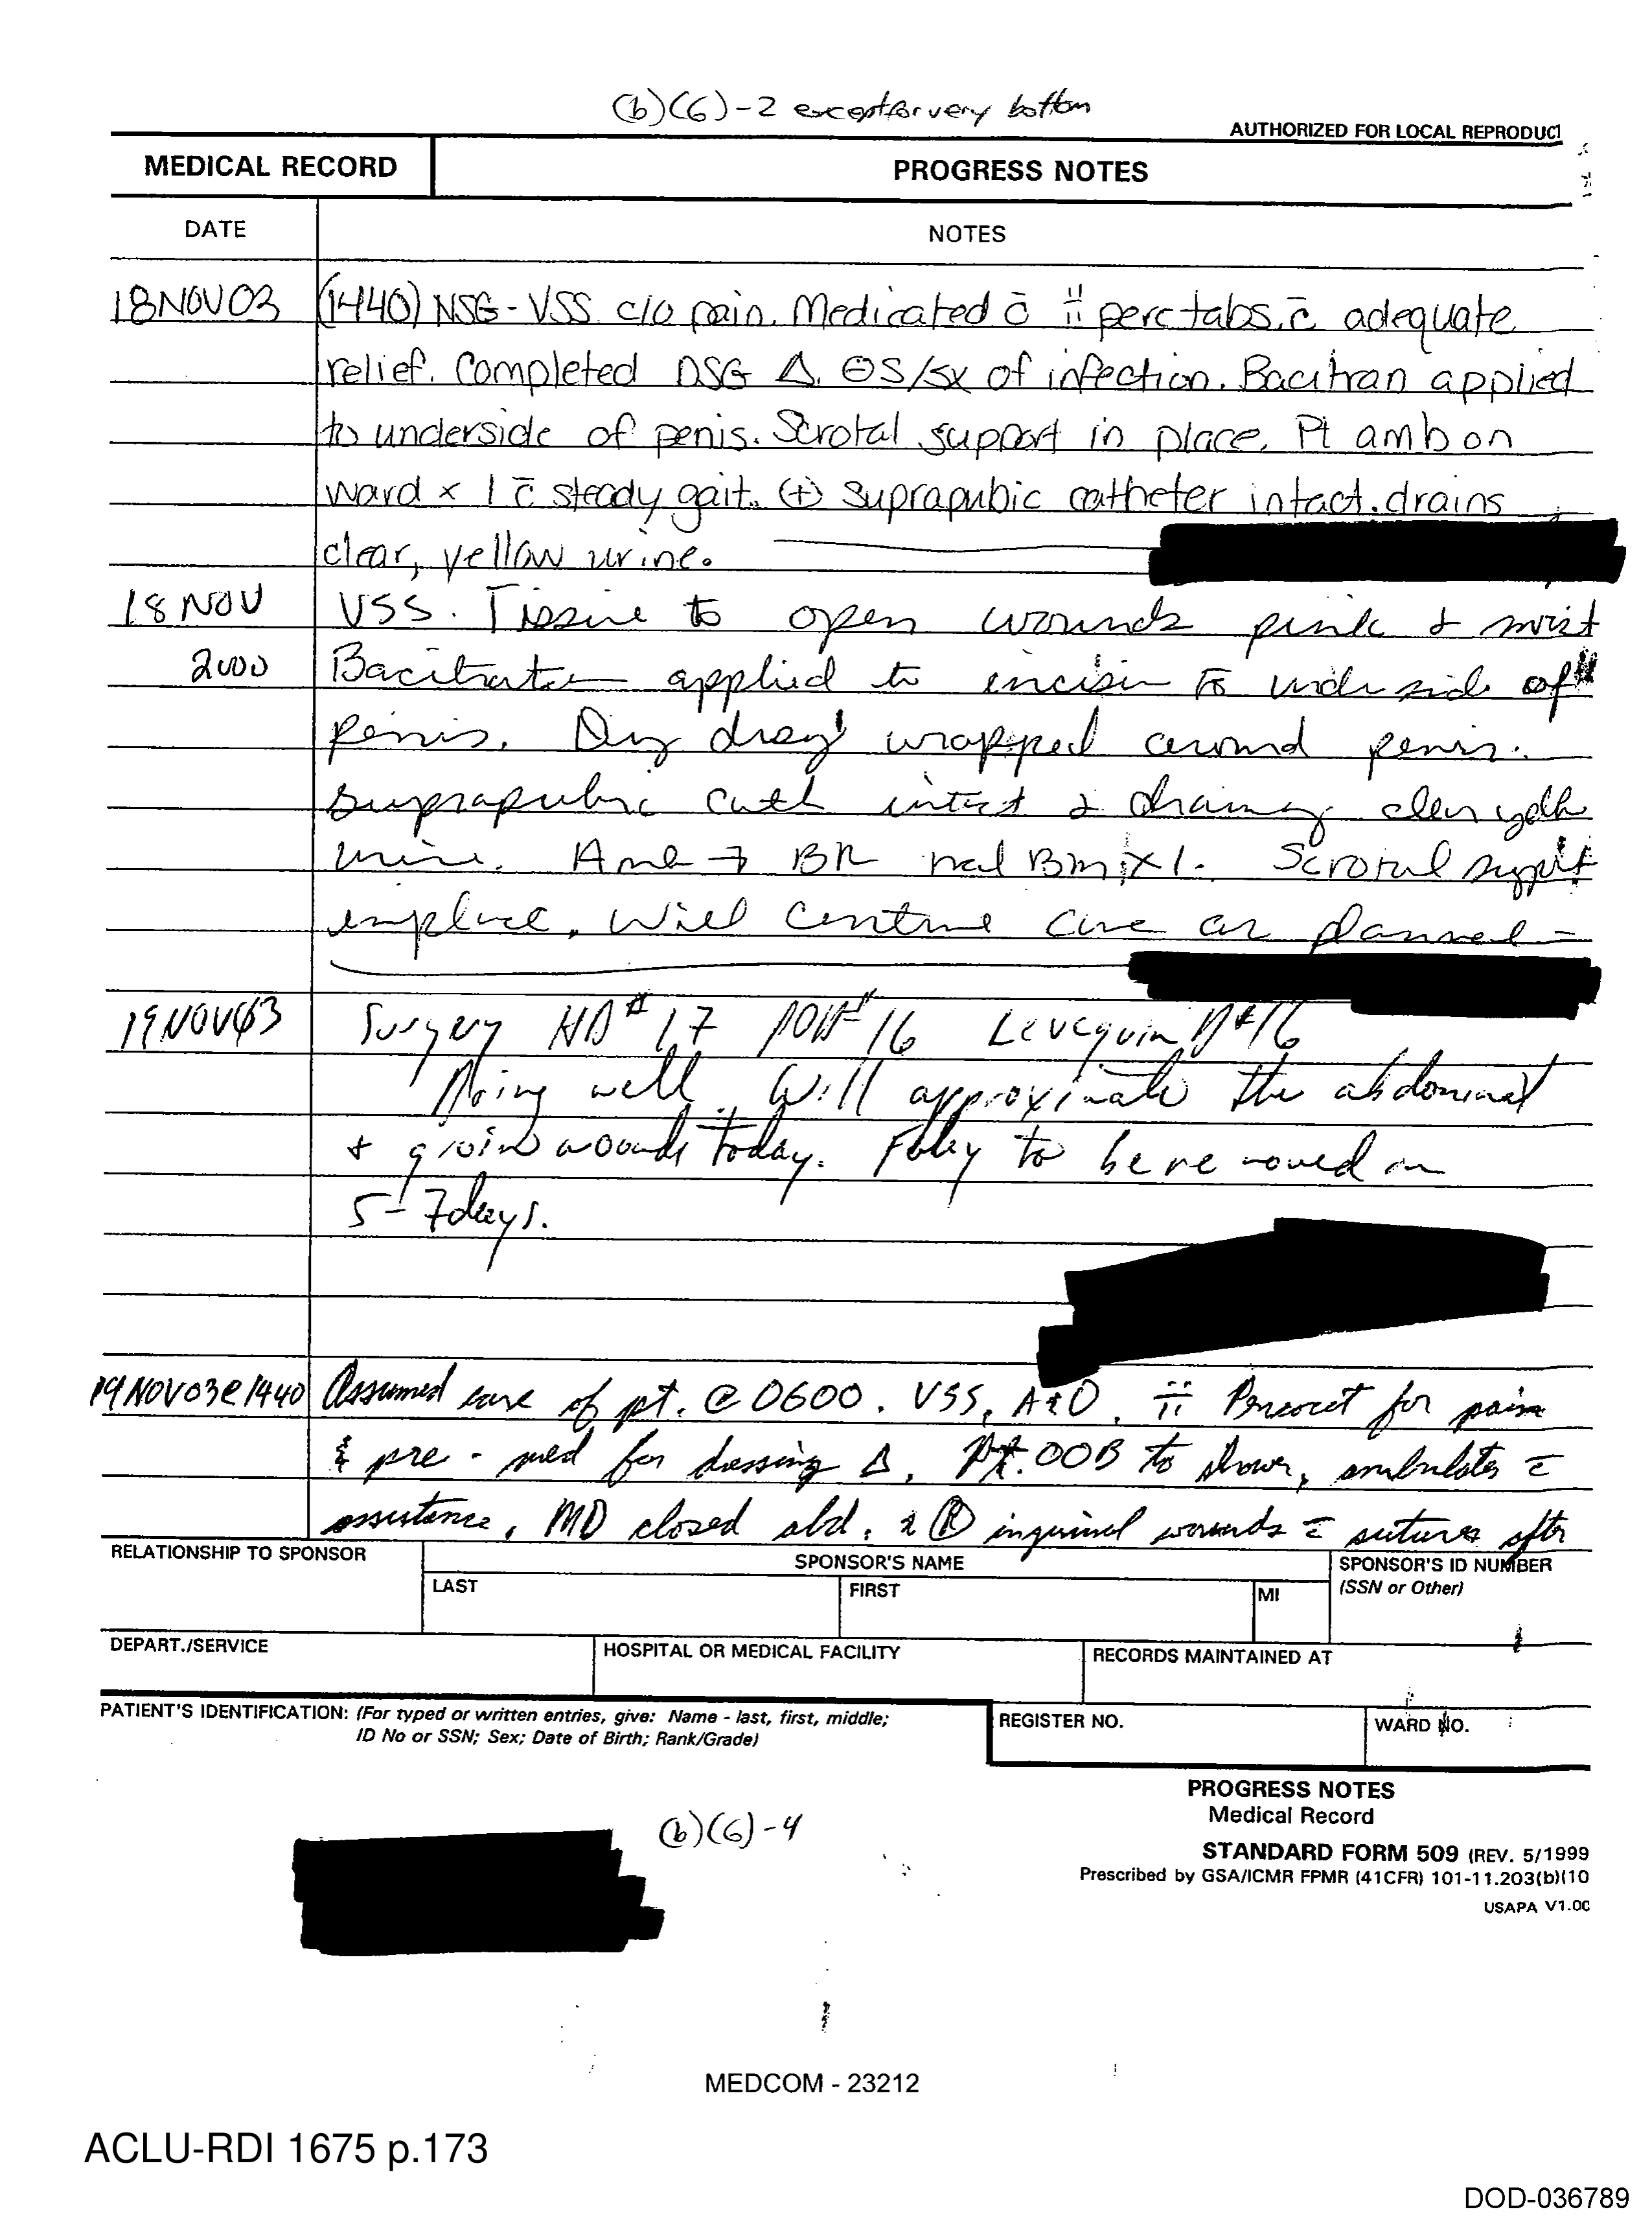 (b)(6)-2 except for very bottom
AUTHORIZED FOR LOCAL REPRODUCT
MEDICAL RECORD
PROGRESS NOTES
DATE
NOTES
18NOV03 (1440) NSG-VSS c/o pain. Medicated c̄ ii perc tabs. c̄ adequate
relief. Completed DSG Δ. ⊖S/Sx of infection. Bacitran applied
to underside of penis. Scrotal support in place. Pt amb on
ward x 1 c̄ steady gait. (+) Suprapubic catheter intact. drains
clear, yellow urine.
18 NOV VSS. Tissue to open wounds pink & moist
2000 applied to incision to underside of
penis. Dry wrapped around penis.
Suprapubic cath intact & draining clear
urine. Amb → BR BM x1. Scrotal support
in place. Will continue care as planned
19NOV03 Surgery HD# 17 POD# 16 Levequin D#16
Doing well. Will approximate the abdominal
+ groin wounds today. Foley to be removed in
5-7 days.
19NOV03@1440 Assumed care of pt. @ 0600. VSS, A&O. ii Percocet for pain
& pre-med for dressing Δ. Pt. OOB to shower, ambulates c̄
assistance. MD closed abd. & Ⓡ inguinal wounds c̄ sutures after
RELATIONSHIP TO SPONSOR
SPONSOR'S NAME
SPONSOR'S ID NUMBER
(SSN or Other)
LAST
FIRST
MI
DEPART./SERVICE
HOSPITAL OR MEDICAL FACILITY
RECORDS MAINTAINED AT
PATIENT'S IDENTIFICATION: (For typed or written entries, give: Name - last, first, middle;
ID No or SSN; Sex; Date of Birth; Rank/Grade)
REGISTER NO.
WARD NO.
PROGRESS NOTES
Medical Record
(b)(6)-4
STANDARD FORM 509 (REV. 5/1999
Prescribed by GSA/ICMR FPMR (41CFR) 101-11.203(b)(10
USAPA V1.00
MEDCOM - 23212
ACLU-RDI 1675 p.173
DOD-036789